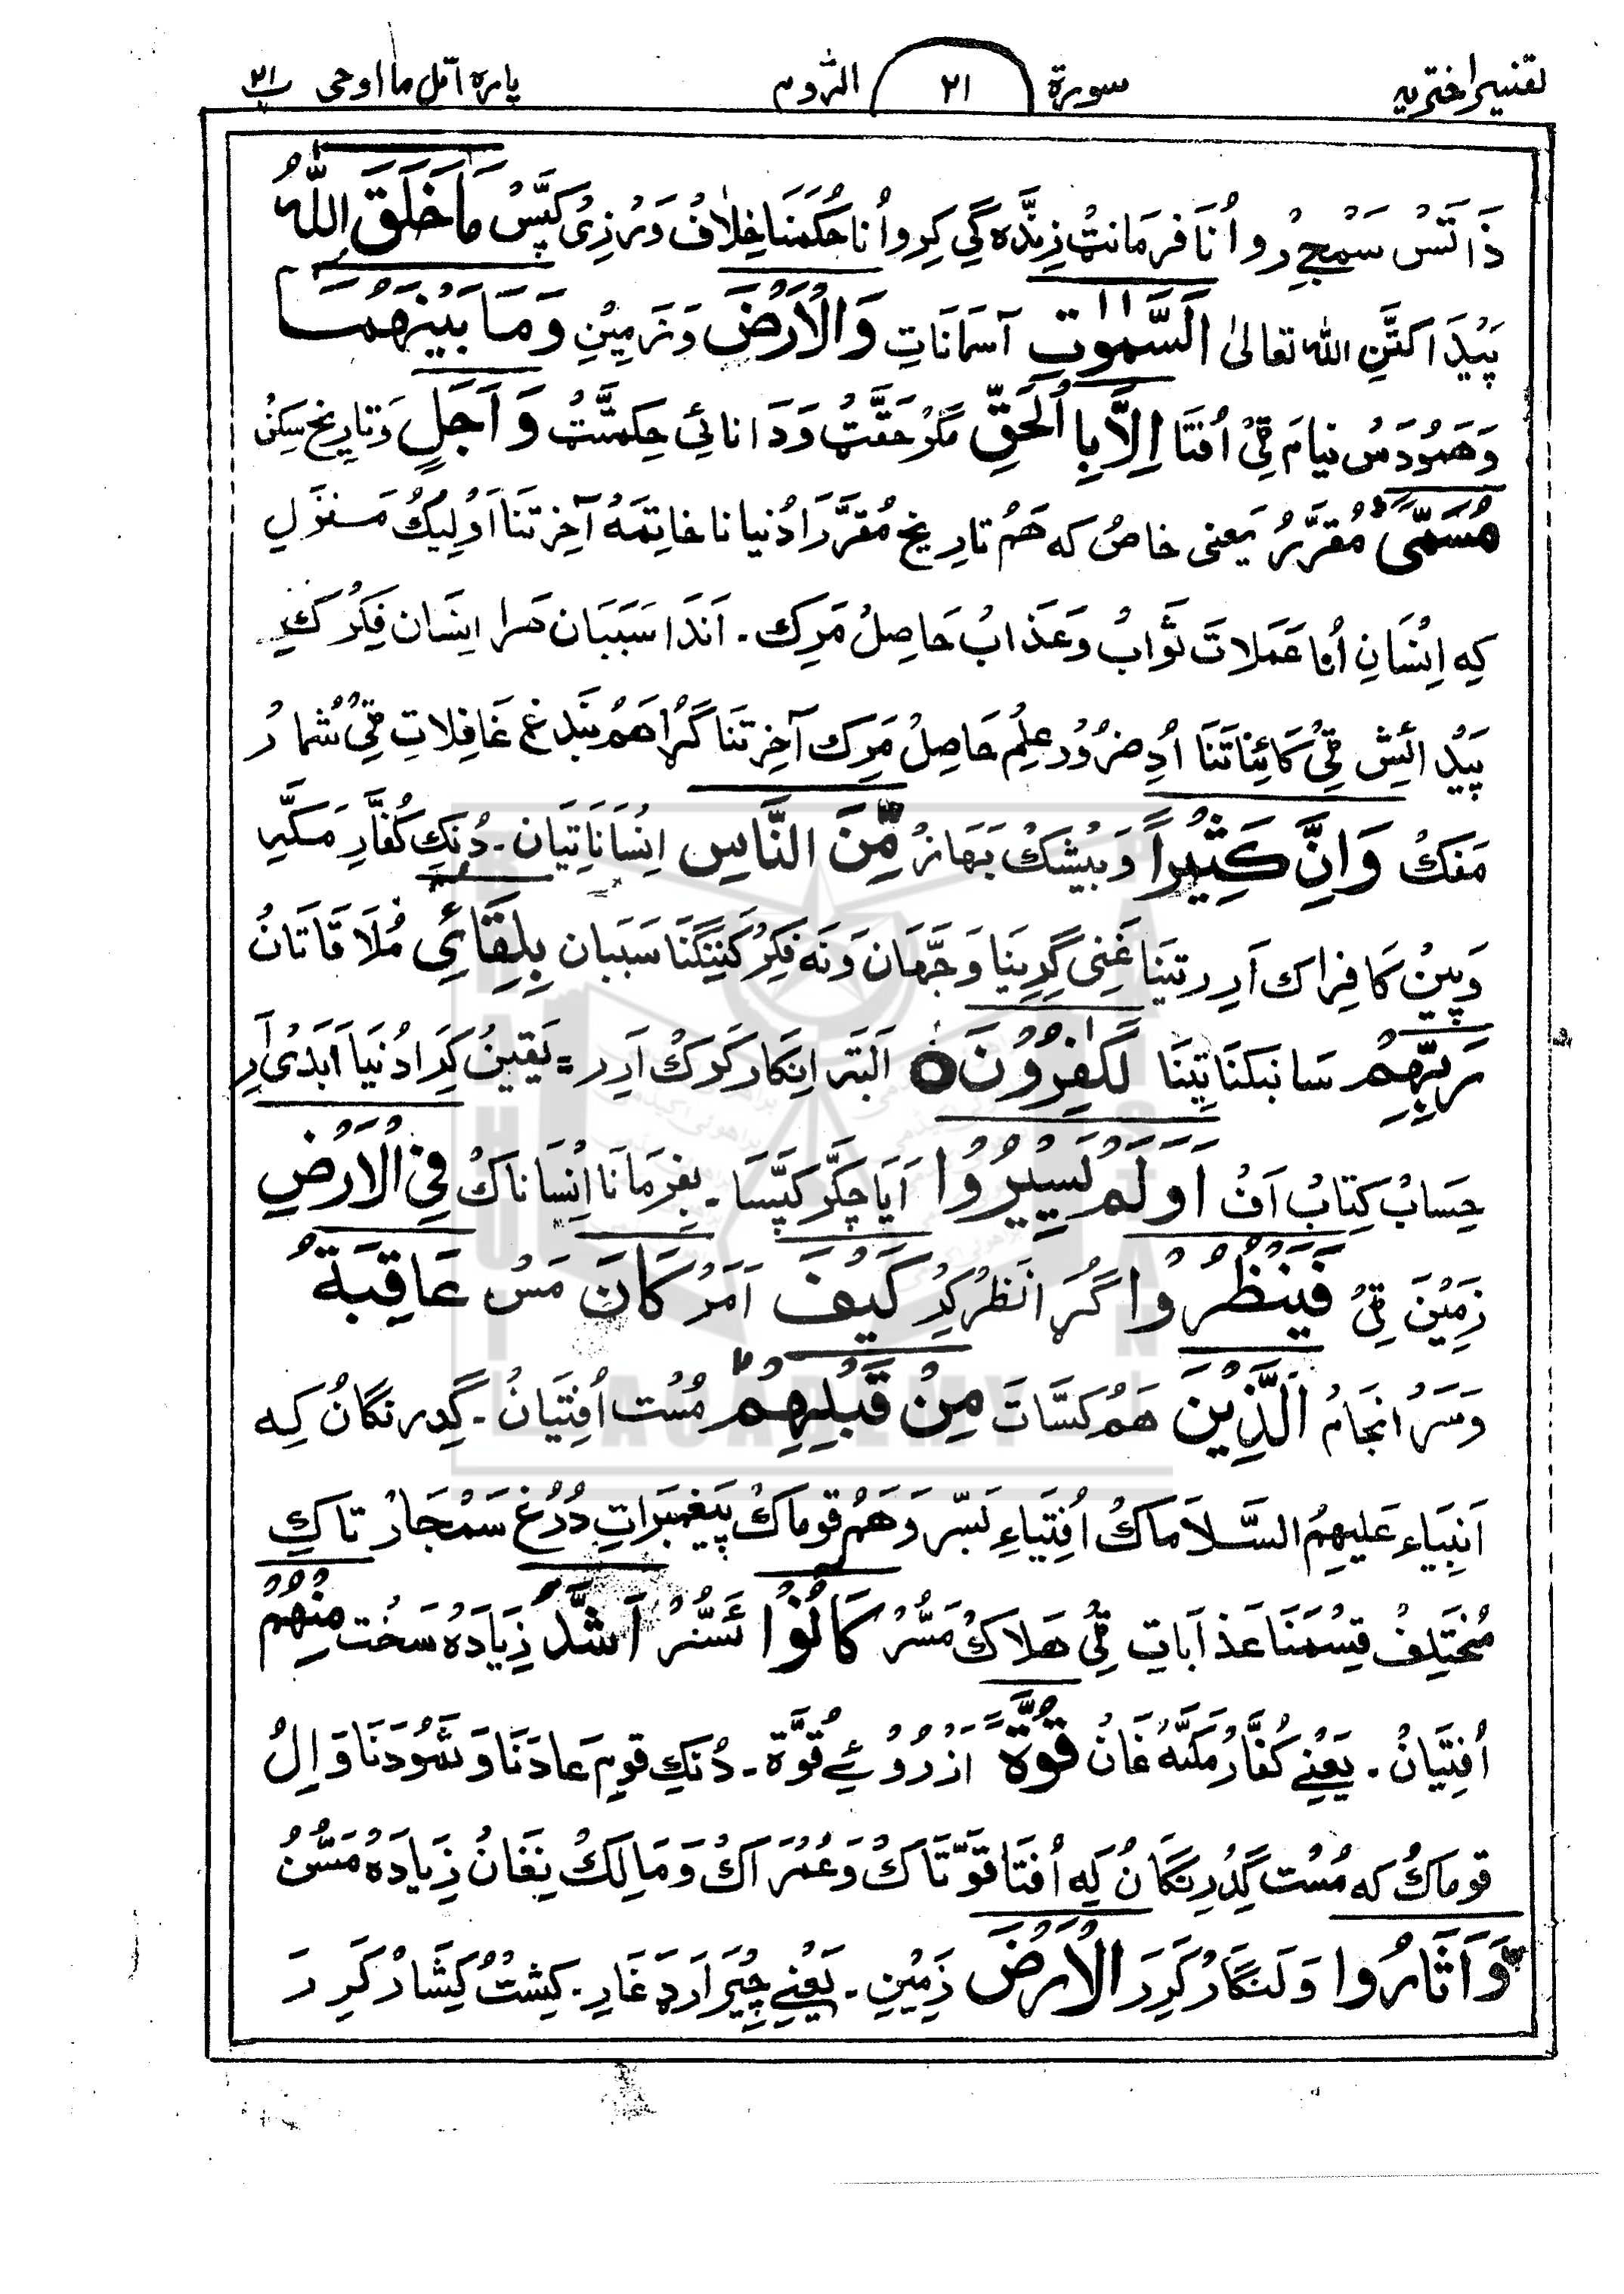 تفسیر اختریہ سورۃ ٢١ الرّوم پارہ اتل ما اوحی ٢١
ذَاتَسْ سَمْجِرُ و اُنَا فَرمَانتٹِ زِنْدَہ گی کِرو اُنا حُکمَنَا خِلاَفُ وَرْزِیْ کَپَّسْ مَاخَلَقَ اللّٰہُ
پَیْدَا کتَّنِ اللہ تعالیٰ السَّمٰوٰتِ آسَمانَاتِ وَالْاَرْضَ وَ زَمِیْنِ وَمَا بَیْنَهُمَا
وَهَمُودَسُ نیامَ ٹِیْ اُفتَا اِلَّا بِا لْحَقِّ مَگرْ حَقَّتْ وَدَانائی حِکمتَّٹْ وَ اَجَلٍ وَتارِیخ سِکنُ
مُسَمًّی مُقرَّرْ یَعنی خاصْ کہ هَمُ تارِیخ مُقرَّرَا دُنیا نا خاتِمَہُ آخِرتَنَا اَوْلِیکُ مَنزَلِ
کِہ اِنْسَانِ اُنا عَمَلاتَ ثَوَابُ وَعَذَابُ حَاصِلُ مَرِک ۔ اَنَدَا سَبَبَان هَرا اِنسَان فِکرْکِ
پَیْدائِشِ ٹِیْ کَائِنَاتَنَا اُدِ ضرُوْر عِلِم حَاصِلْ مَرِک آخِرتَنَا گڑا هَمُ بَنْدِغ غَافِلاتِ ٹِیْ شُمارُ
مَفکْ وَاِنَّ کَثِیْرًا وَبیْشکْ بَهَازْ مِّنَ النَّاسِ اِنْسَانَاتِیَان ۔ دُنکِ کُفَّارِ مَکَّہِ
وَپِیْن کَافِرَاک اَرِر تیَنا غَنِی گَرِینَا وَجَهَان وَنَہ فِکرْ کَنِنِگنَا سَبَبان بِلِقَائِ مُلَاقَاتَانُ
رَبِّهِمْ سَانبکنَا تیِنَا لَکٰفِرُوْنَ O اَلبَتہ اِنکَارکَرکْ اَرِر = یَقینُ کَرَا دُنیَا اَبَدی اَرِ
حِسَابْ کِتَابْ اَفْ اَوَلَمْ یَسِیْرُوْا اَیَا چَکَّر کَپَّسَا ۔ بِفَرمَانَا اِنْسَاناکُ فِی الْاَرْضِ
زَمِیْنَ ٹِیْ فَیَنْظُرُوْا گُڑا نَظرْکرِ کَیْفَ اَمَرْ کَانَ مَسْ عَاقِبَةُ
وَسَرْانجَامُ الَّذِیْنَ هَمْ کسَّاتَ مِنْ قَبْلِهِمْ مُسْت اُفِتیَانْ ۔ گِدرنگانُ کِہ
اَنبِیَاء عَلیهِمُ السَّلاَماکْ اُفِتیَاءِ بَسّر وَهَمْ قوماکُ پَیغمبَراتِ دُرُغ سَمْجَارْ تاکِ
مُختَلِفُ قِسْمَنَا عَذَابَاتِ ٹِیْ هَلاکْ مَسُّرْ کَانُوْا ئَسُّرْ اَشَدَّ زِیَادَہ سَخْت مِنْهُمْ
اُفِتیَانْ ۔ یَعْنے کُفَّارْ مَکّہُ غَانْ قُوَّةً اَزْرُوْئے قُوَّة ۔ دُنکِ قومِ عَادَنَا وَثَمُوْدَنَا وَ اِلُ
قوماکْ کہ مُسْت گِدْرِنگانْ کِہ اُفتَا قوَّتَاکْ وَعُمْرَاکْ وَمَالِکْ نِغَانْ زِیَادَہْ مَسُّنْ
وَاَثَارُوا وَلَنگَارْ کَرِرَ الْاَرْضَ زَمِیْنِ ۔ یَعْنے چِیَراَرِدِ غَارِ ۔ کِشتْ کِشَارْ کَرِرَ